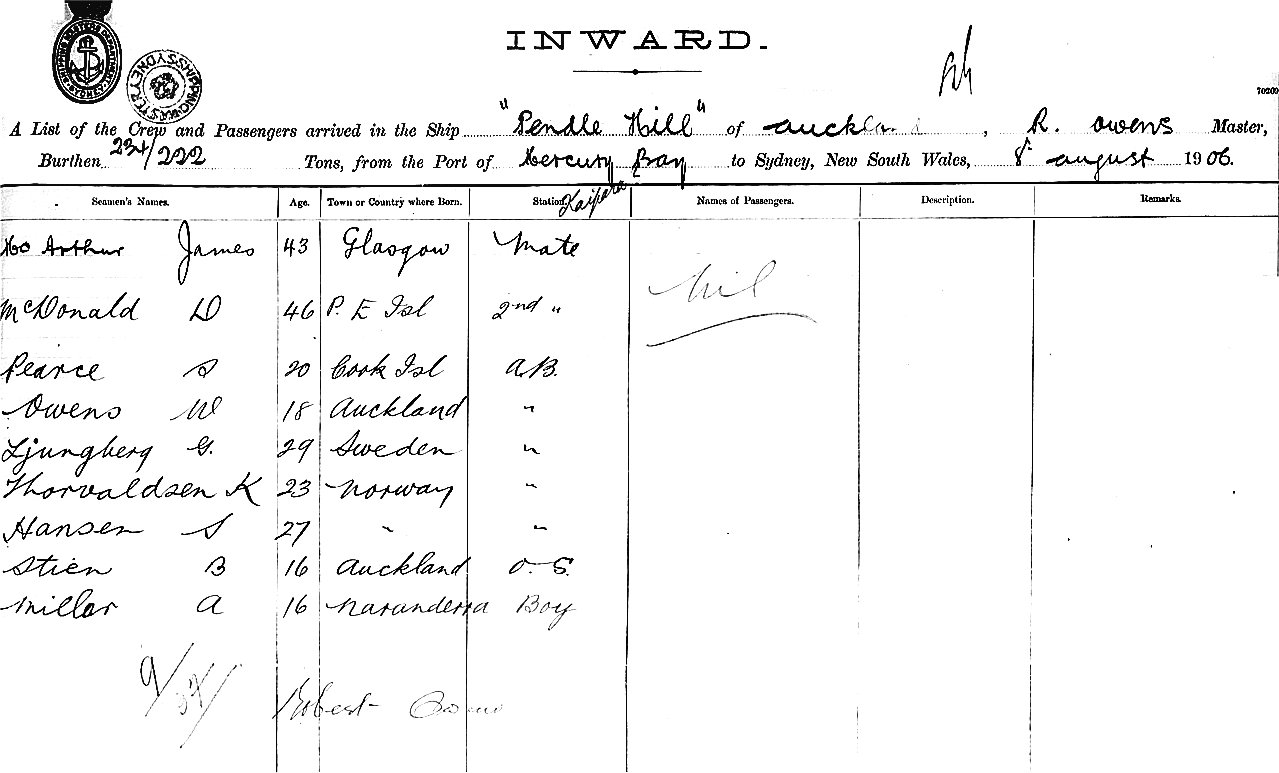 INWARD.
70200
A List of the Crew and Passengers arrived in the Ship "Pendle Hill" of Auckland, R. Owens Master,
Burthen 234/222 Tons, from the Port of Mercury Bay to Sydney, New South Wales, 8th August 1906.
Kaipara
Seamen's Names. Age. Town or Country where Born. Station Names of Passengers. Description. Remarks.
Mc Arthur James 43 Glasgow Mate
Nil
McDonald D 46 P. E Isl 2nd "
Pearce S 20 Cook Isl A.B.
Owens W 18 Auckland "
Ljungberg G. 29 Sweden "
Thorvaldsen K 23 Norway "
Hansen S 27 " "
Stien B 16 Auckland O.S.
Millar A 16 Narunderra Boy
9/
Robert Owens